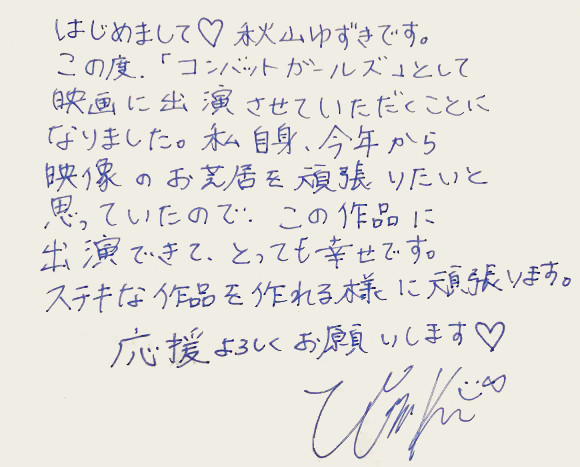 はじめまして♡ 秋山ゆずきです。
この度、「コンバットガールズ」として
映画に出演させていただくことに
なりました。私自身、今年から
映像のお芝居を頑張りたいと
思っていたので、この作品に
出演できて、とっても幸せです。
ステキな作品を作れる様に頑張ります。
応援よろしくお願いします♡